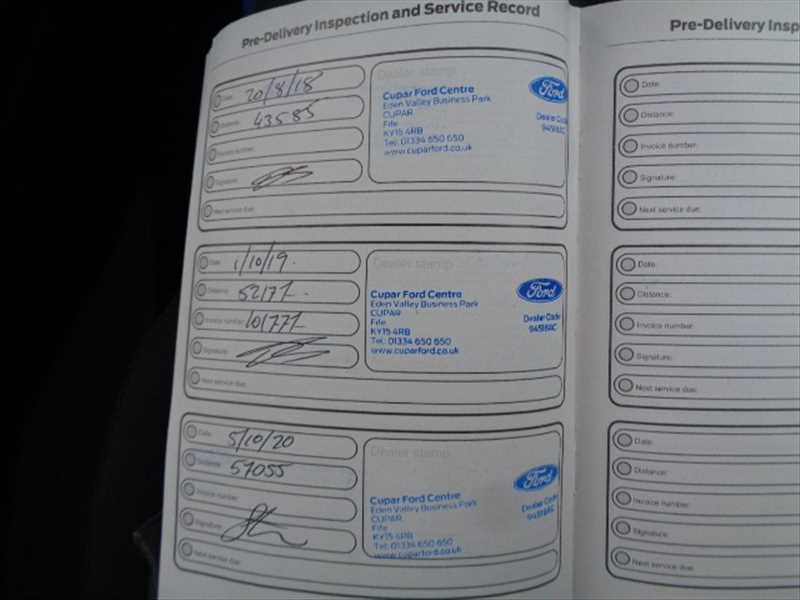 Pre-Delivery Inspection and Service Record
Date: 20/8/18
Distance: 43585
Invoice number:
Signature:
Next service due:
Dealer stamp
Cupar Ford Centre
Eden Valley Business Park
CUPAR
Fife
KY15 4RB
Tel: 01334 650 650
www.cuparford.co.uk
Ford
Dealer Code
94518AC
Date: 1/10/19.
Distance: 52177
Invoice number: 101777
Signature:
Next service due:
Dealer stamp
Cupar Ford Centre
Eden Valley Business Park
CUPAR
Fife
KY15 4RB
Tel: 01334 650 650
www.cuparford.co.uk
Ford
Dealer Code
94518AC
Date: 5/10/20
Distance: 57055
Invoice number:
Signature:
Next service due:
Dealer stamp
Cupar Ford Centre
Eden Valley Business Park
CUPAR
Fife
KY15 4RB
Tel: 01334 650 650
www.cuparford.co.uk
Ford
Dealer Code
94518AC
Pre-Delivery Insp
Date:
Distance:
Invoice number:
Signature:
Next service due:
Date:
Distance:
Invoice number:
Signature:
Next service due:
Date:
Distance:
Invoice number:
Signature:
Next service due: